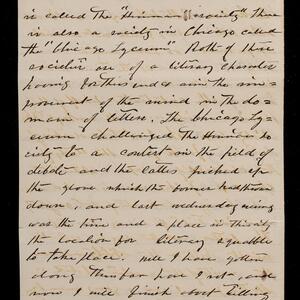 is called the "Hinman society" there
is also a society in Chicago called
the "Chicago Lyceum" Both of these
societies are of a literary character
having for this end & aim the im-
provement of the mind in the do-
main of letters. The Chicago Ly-
ceum challenged the Hinman so
ciety to a contest in the field of
debate and the latter picked up
the glove which the former had thrown
down, and last wednesday evening
was the time and a place in this city
the location for literary squabble
to take place. well I have gotten
along thus far have I not, and
now I will finish about telling